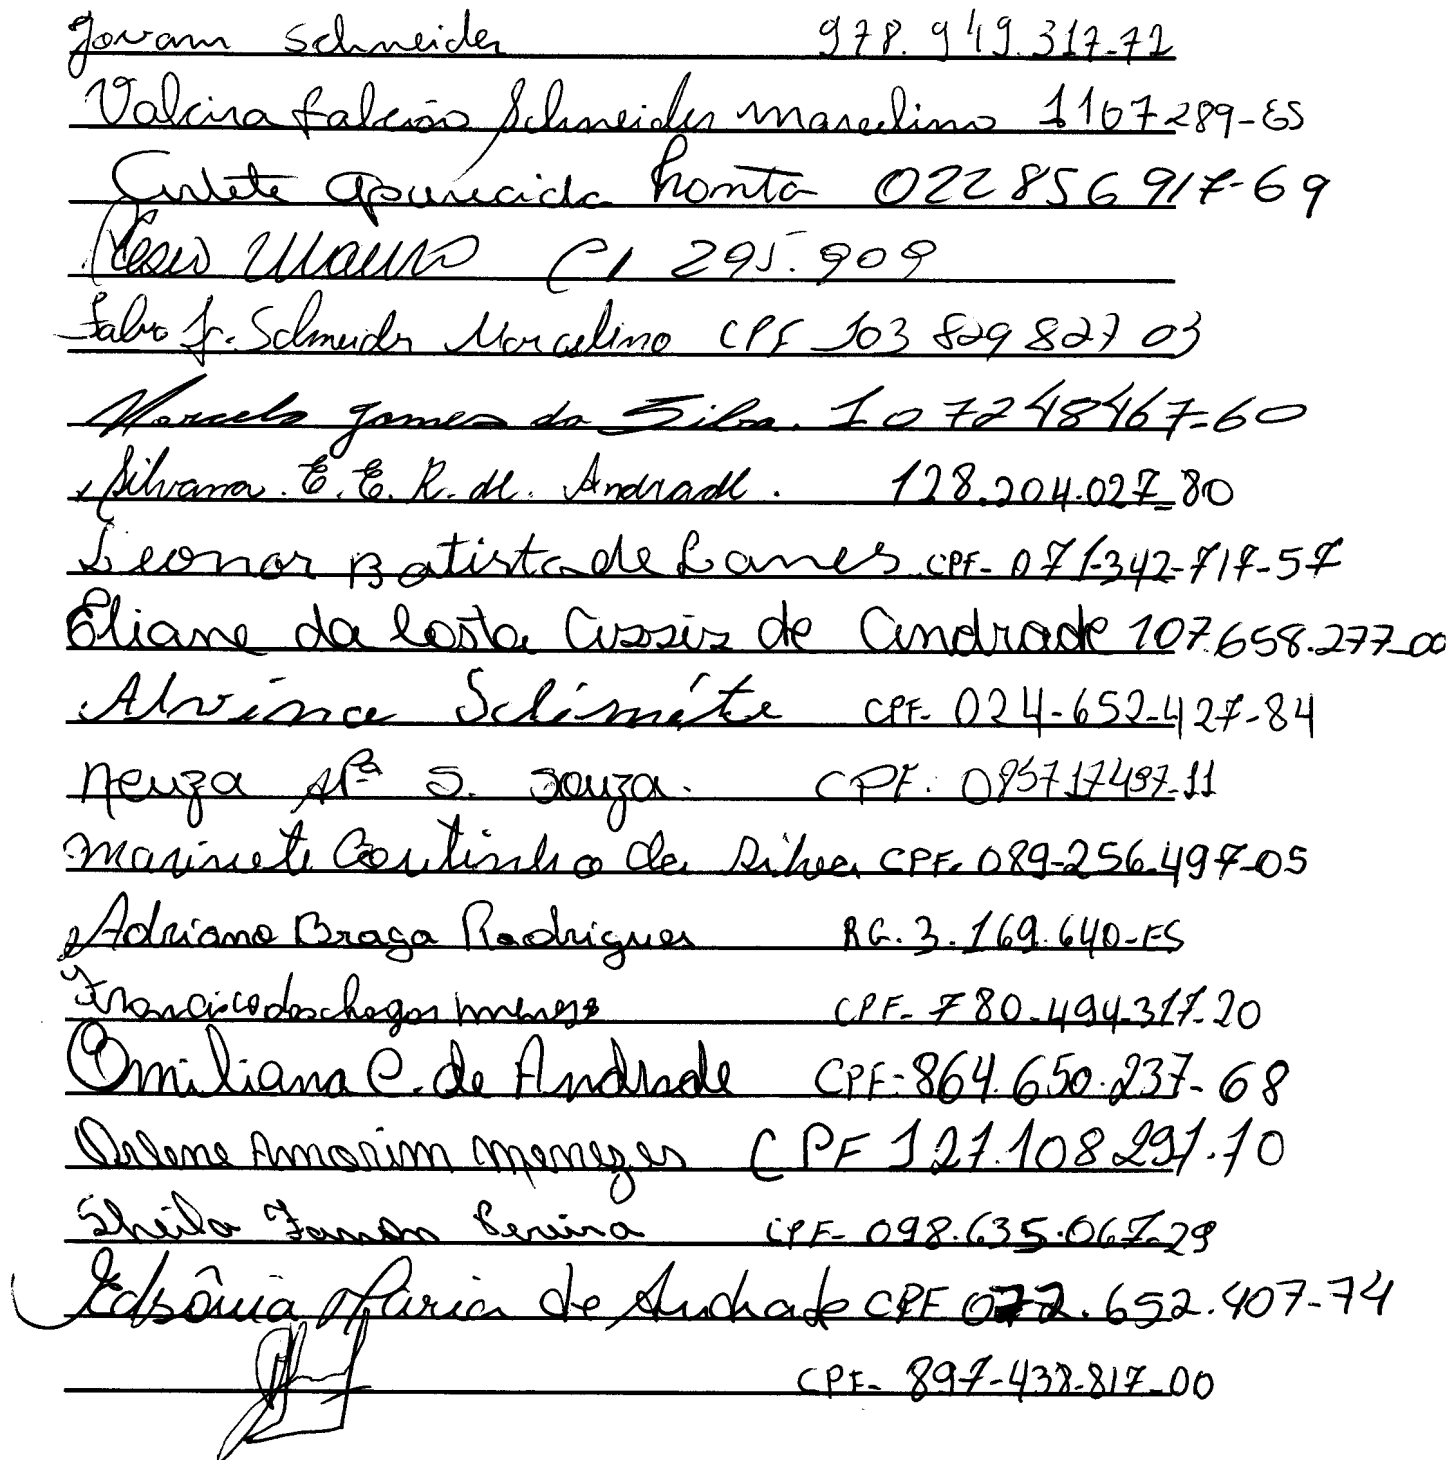 Jovam Schneider 978.949.317-72
Valcira falcão Schneider marcelino 1107289-ES
Arlete aparecida honta 022856917-69
Mauro CI 295.909
Fabio Jr. Schneider Marcelino CPF 103 829 827 03
Marcelo gomes da Silva. 107248467-60
Silvana. E. E. R. de. Andrade. 128.204.027-80
Leonor Batista de Lanes CPF- 071-342-717-57
Eliane da Costa Assis de Andrade 107.658.277-00
Alvina Sclimíte CPF- 024-652-427-84
neuza Mª S. Souza. CPF: 085717497-11
marinete Coutinho da Silva CPF- 089-256.497-05
Adriano Braga Rodrigues RG. 3.169.640-ES
Francisco das chagas menezes CPF- 780-494-317-20
Emiliana C. de Andrade CPF-864.650.237-68
Orlene Amorim menezes CPF 127.108.291-10
Sheila Ramos Pereira CPF- 098.635.067-29
Edsônia Maria de Andrade CPF 072.652.407-74
CPF- 897-438-817-00